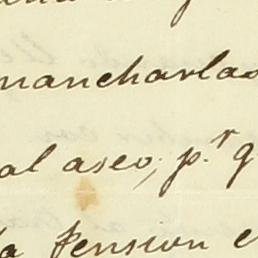 mancharlas
al aseo; p.r q
la Pension e